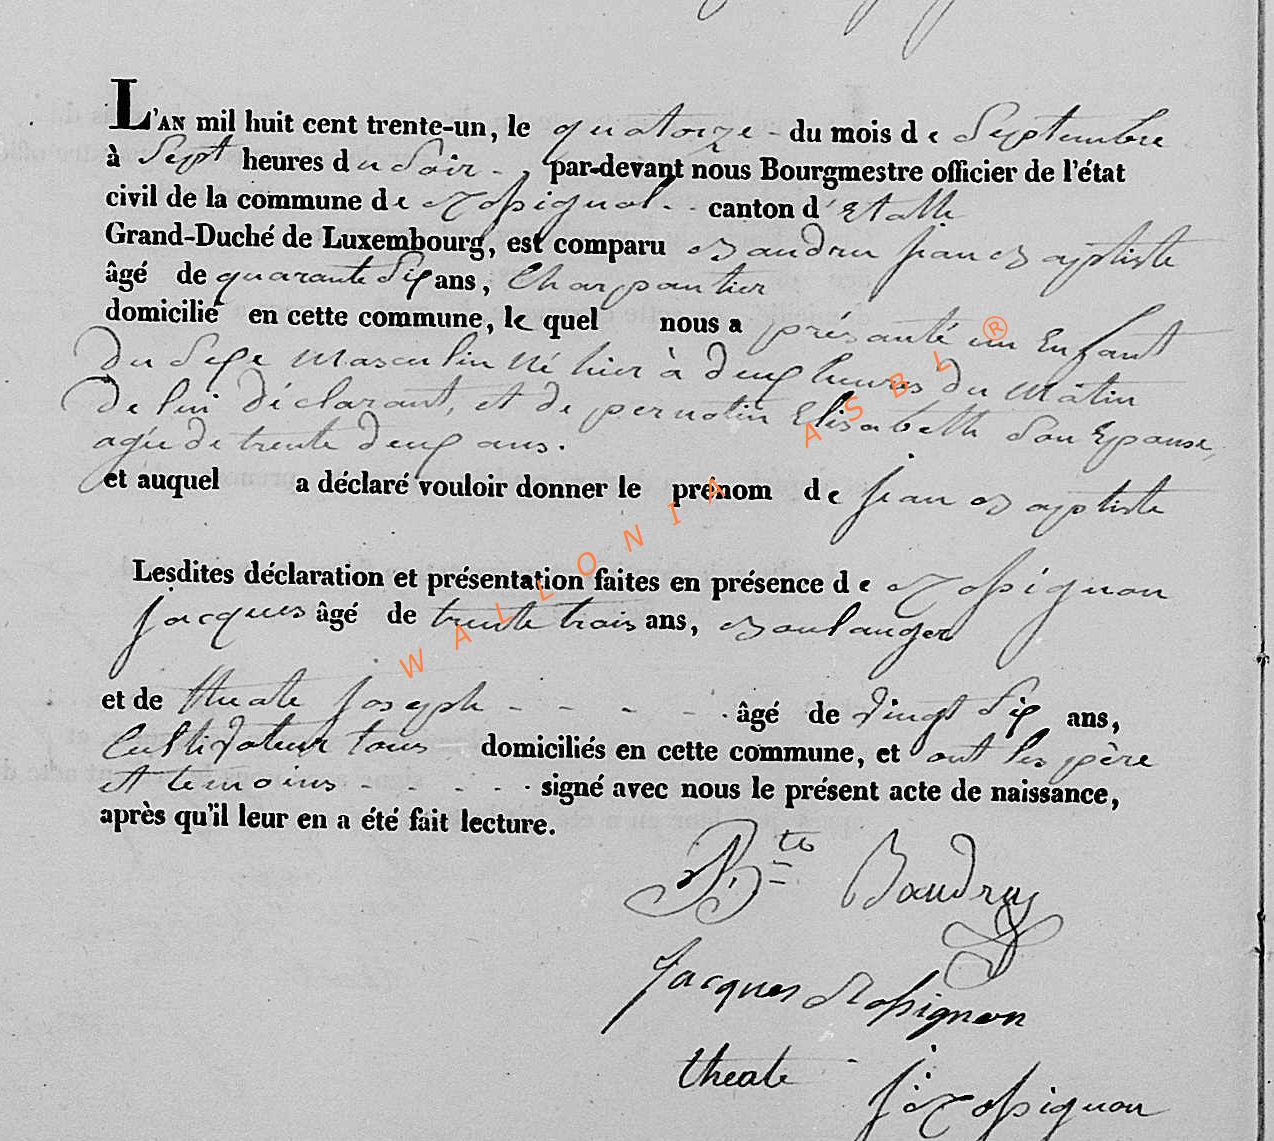 L'AN mil huit cent trente-un, le quatorze - du mois de Septembre
à Sept heures du Soir - , par-devant nous Bourgmestre officier de l'état
civil de la commune de Rossignol - - canton d'Etalle
Grand-Duché de Luxembourg, est comparu Baudru jean Baptiste
âgé de quarante Six ans, Charpantier
domicilié en cette commune, le quel nous a présanté un Enfant
du Sexe Masculin né hier à deux heures du Mâtin
de lui déclarant, et de pernotin Elisabeth Son Epouse,
agée de trente deux ans.
et auquel a déclaré vouloir donner le prénom de jean Baptiste
Lesdites déclaration et présentation faites en présence de Rossignon
Jacques âgé de trente trois ans, Boulanger
et de theate Joseph - - - - - âgé de vingt Six ans,
Cultivateur tous domiciliés en cette commune, et ont les père
et temoins - - - - - signé avec nous le présent acte de naissance,
après qu'il leur en a été fait lecture.
Bte Baudru
Jacques Rossignon
theate J: Rossignon
WALLONIA ASBL ®